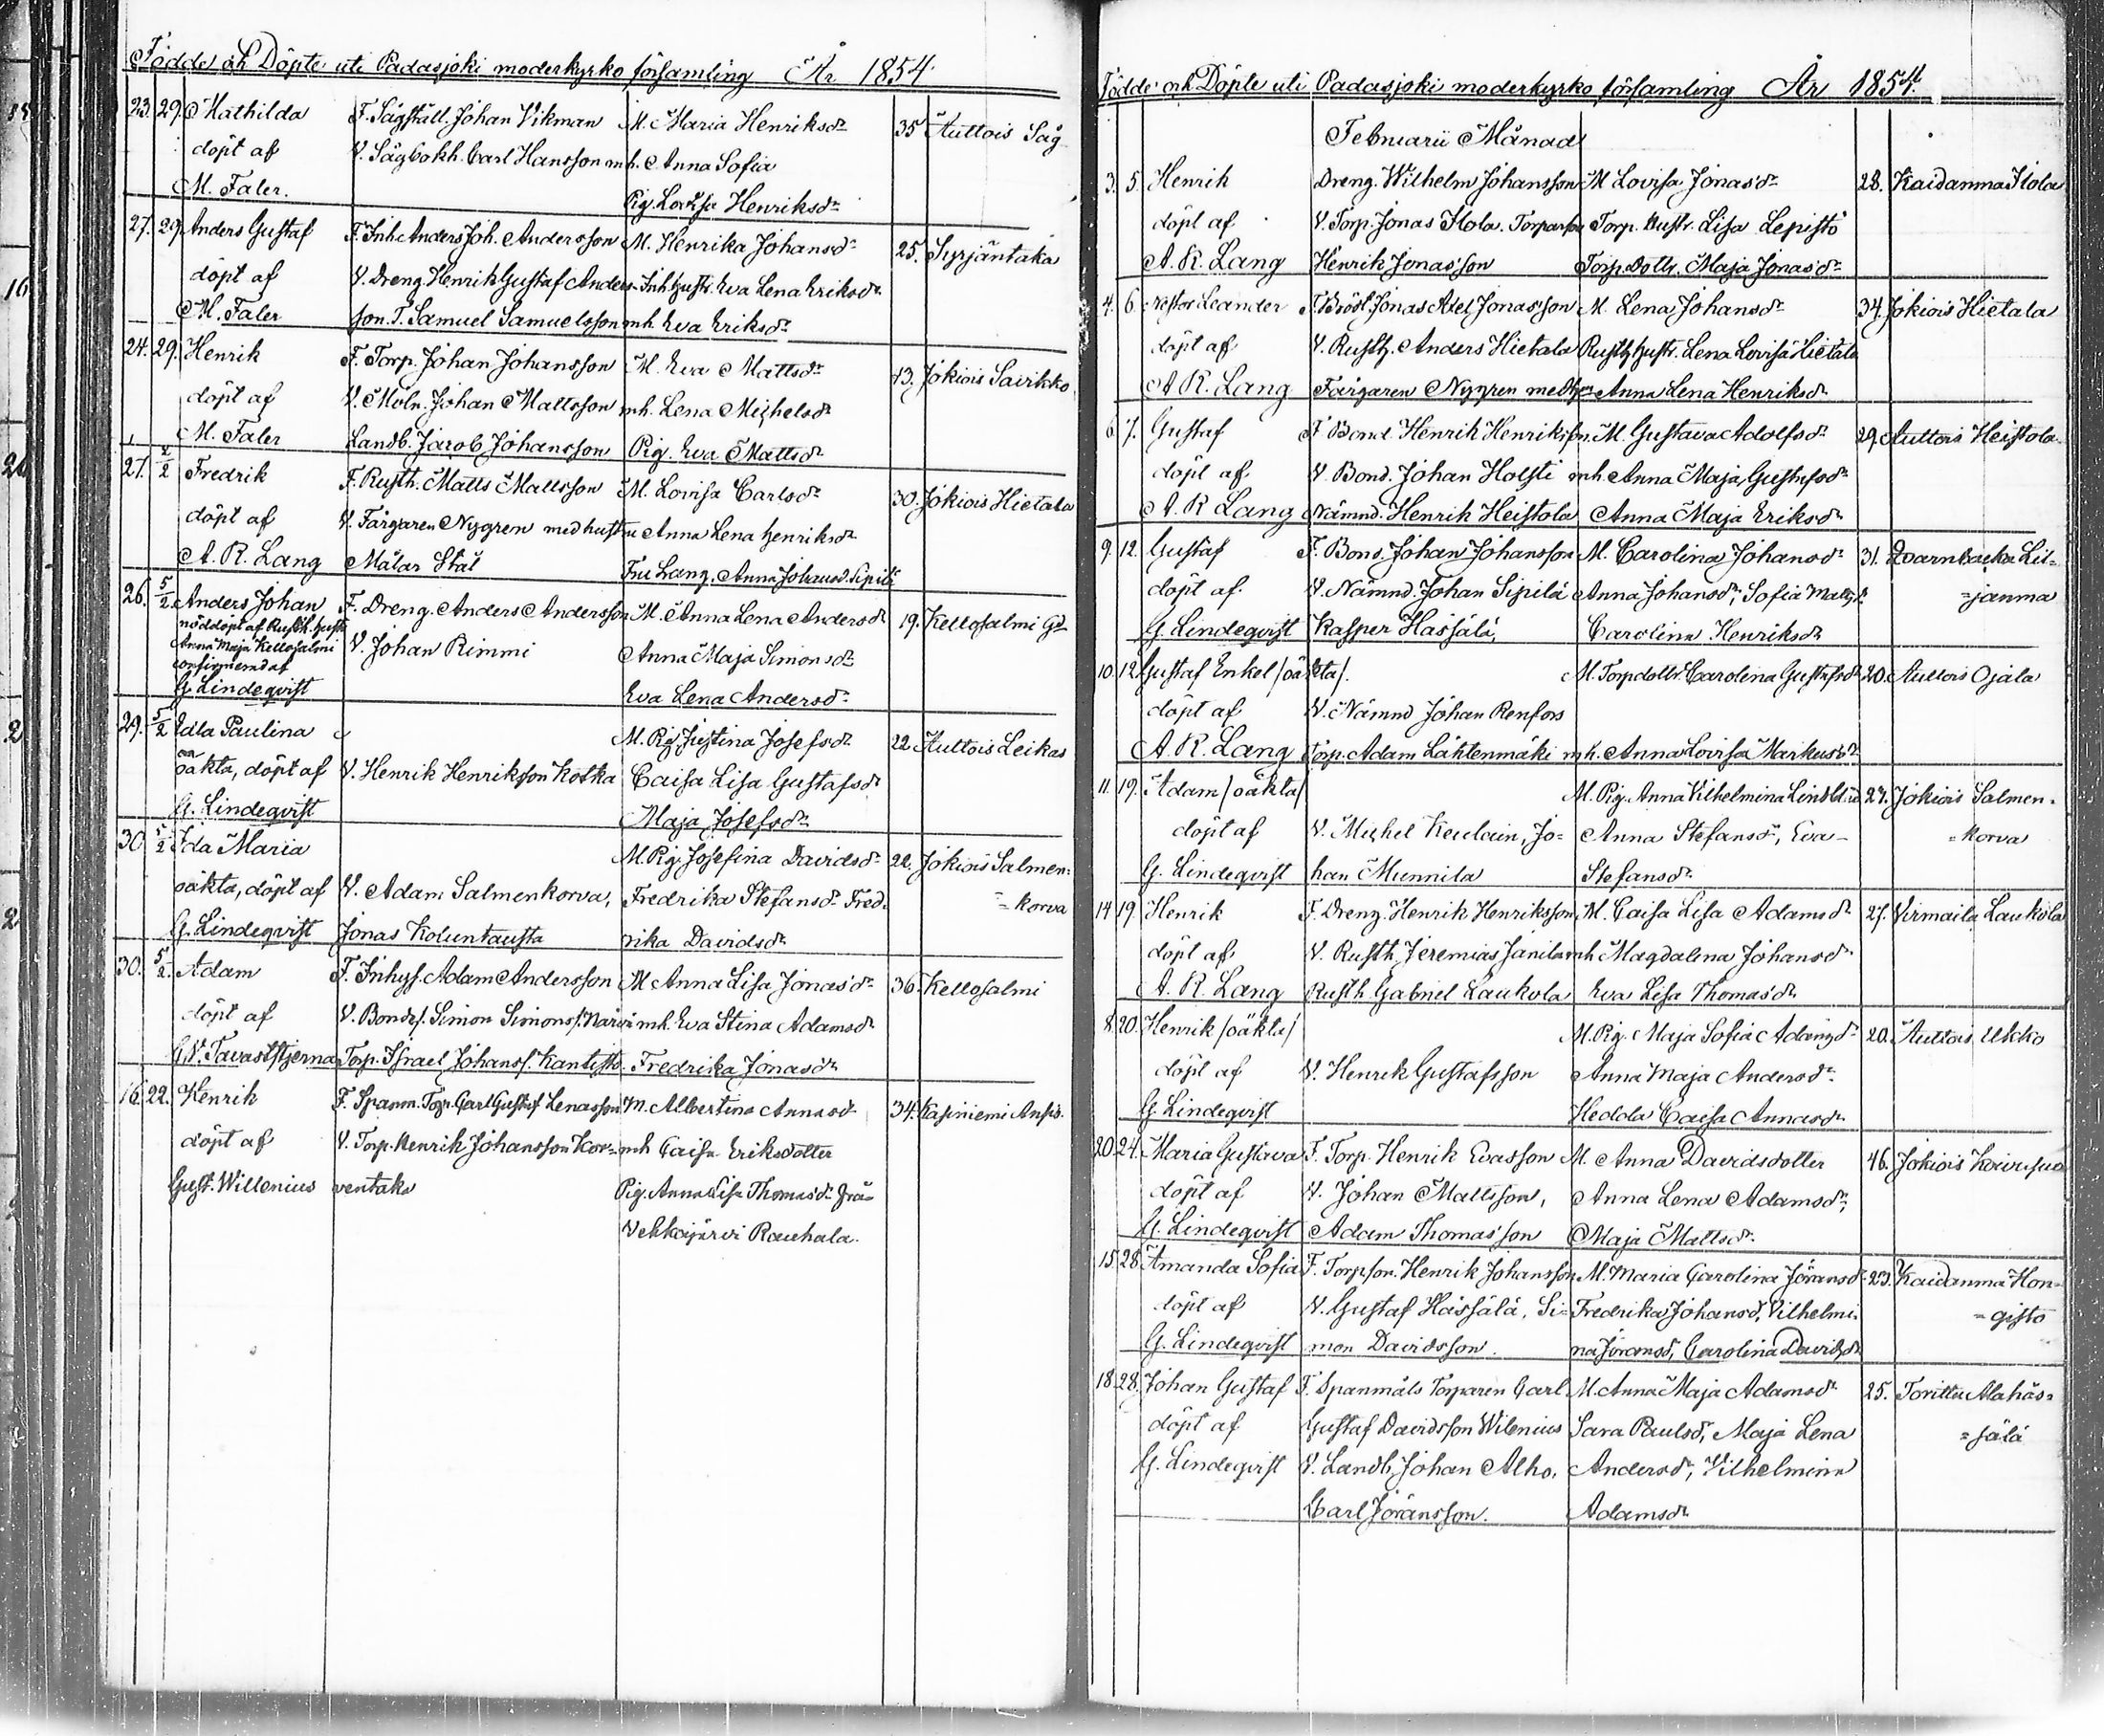 Födde och Döpte uti Padasjoki moderkyrko församling År 1854.
23. 29. Mathilda F. Sågställ. Johan Vikman M. Maria Henriksdr 35 Auttois Såg
döpt af V. Sågbokh. Carl Hansson mh. Anna Sofia
M. Faler. Pig. Lovisa Henriksdr
27. 29 Anders Gustaf F. Inh. Anders Joh. Andersson M. Henrika Johansdr 25. Syrjäntaka
döpt af V. Dreng. Henrik Gustaf Anders- Inh. hustr. Eva Lena Eriksdr
M. Faler son. T. Samuel Samuelsson mh. Eva Eriksdr
24. 29. Henrik F. Torp. Johan Johansson M. Eva Mattsdr 43. Jokiois Savikko
döpt af V. Möln. Johan Mattsson mh. Lena Michelsdr
M. Faler Landb. Jacob Johansson Pig. Eva Mattsdr
27. 2/2 Fredrik F. Rusth. Matts Mattsson M. Lovisa Carlsdr 30. Jokiois Hietala
döpt af V. Färgaren Nygren med hustru Anna Lena Henriksdr
A. R. Lang Målar Stål Fru Lang. Anna Johansd. Sipilä
26. 5/2 Anders Johan F. Dreng. Anders Andersson M. Anna Lena Andersdr 19. Kellosalmi Gd
nöddöpt af Rusth. hustr
Anna Maja Kellosalmi V. Johan Rimmi Anna Maja Simonsdr
confirmerad af
G. Lindeqvist Eva Lena Andersdr
29. 5/2 Edla Paulina M. Pig. Justina Josefsdr 22 Auttois Leikas
oäkta, döpt af V. Henrik Henriksson Kotka Caisa Lisa Gustafsdr
G. Lindeqvist Maja Josefsdr
30. 5/2 Ida Maria M. Pig. Josefina Davidsdr 22. Jokiois Salmen=
oäkta, döpt af V. Adam Salmenkorva, Fredrika Stefansdr Fred. =korva
G. Lindeqvist Jonas Koluntausta rika Davidsdr
30. 5/2. Adam F. Inhys. Adam Andersson M Anna Lisa Jonasdr 36. Kellosalmi
döpt af V. Bonds. Simon Simons. mh. Eva Stina Adamsdr
G. V. Tavaststjerna Torp. Israel Johans. Kantisto. Fredrika Jonasdr
16. 22. Henrik F. Spanm. Torp. Carl Gustaf Lenasson M. Albertina Annasdr 34. Kasiniemi Anpis.
döpt af V. Torp. Henrik Johansson Kor= mh Caisa Eriksdotter
Gust. Willenius ventaka Pig. Anna Lisa Thomasdr från
Vehkajärvi Rauhala.
Födde och Döpte uti Padasjoki moderkyrko församling År 1854.
Februarii Månad
3. 5. Henrik Dreng. Wilhelm Johansson M Lovisa Jonasdr 28. Kaidanma Ilola
döpt af V. Torp. Jonas Ilola. Torparson Torp. Hustr. Lisa Lepistö
A. R. Lang Henrik Jonasson Torp. Dottr. Maja Jonasdr
4. 6 Nestor Leander F. Jonas Axel Jonasson M. Lena Johansdr 34. Jokiois Hietala
döpt af V. Rusth. Anders Hietala Rusth. hustr. Lena Lovisa Hietala
A R. Lang Färgaren Nygren med Anna Lena Henriksdr
6 7. Gustaf F. Bond. Henrik Henriksson. M. Gustava Adolfsdr 29 Auttois Heistola
döpt af V. Bond. Johan Holsti mh. Anna Maja Gustafsdr
A. R Lang Nämnd. Henrik Heistola Anna Maja Eriksdr
9. 12. Gustaf F. Bond. Johan Johansson M. Carolina Johansdr 31. Qvarnbacka Lil=
döpt af. V. Nämnd. Johan Sipilä Anna Johansdr, Sofia Mattsdr =janma
G. Lindeqvist Kasper Hassälä, Carolina Henriksdr
10. 12 Gustaf Enkel /oäkta/. M. Torpdottr. Carolina Gustafsdr 20. Auttois Ojala
döpt af V. Nämnd Johan Renfors
A. R. Lang Torp. Adam Lähtenmäki mh. Anna Lovisa Markusdr
11. 19. Adam /oäkta/ M. Pig. Anna Vilhelmina Lindblad 27. Jokiois Salmen-
döpt af V. Michel Keulain, Jo= Anna Stefansdr, Eva =korva
G. Lindeqvist han Munnila Stefansdr
14 19. Henrik F. Dreng. Henrik Henriksson M. Caisa Lisa Adamsdr 27. Virmaila Laukola
döpt af V. Rusth. Jeremias Janila mh Magdalena Johansdr
A. R. Lang Rusth. Gabriel Laukola Eva Lisa Thomasdr
8 20. Henrik /oäkta/ M. Pig. Maja Sofia Adamsdr 20. Auttois Ukko
döpt af V. Henrik Gustafsson Anna Maja Andersdr
G. Lindeqvist Hedda Caisa Annasdr
20 24. Maria Gustava F. Torp. Henrik Evasson M. Anna Davidsdotter 46. Jokiois Koivusuo
döpt af V. Johan Mattsson, Anna Lena Adamsdr,
G. Lindeqvist Adam Thomasson Maja Mattsdr
15. 28 Amanda Sofia F. Torpson. Henrik Johansson M. Maria Carolina Göransdr 23. Kaidanma Hon-
döpt af V. Gustaf Hassälä, Si= Fredrika Johansdr, Vilhelmi. =gisto
G. Lindeqvist mon Davidsson. na Göransdr, Carolina Davidsdr
18 28. Johan Gustaf F. Spanmåls Torparen Carl M. Anna Maja Adamsdr 25. Torittu Alahäs=
döpt af Gustaf Davidsson Wilenius Sara Paulsdr, Maja Lena =sälä
G. Lindeqvist V. Landb. Johan Alho, Andersdr, Vilhelmina
Carl Göransson. Adamsdr